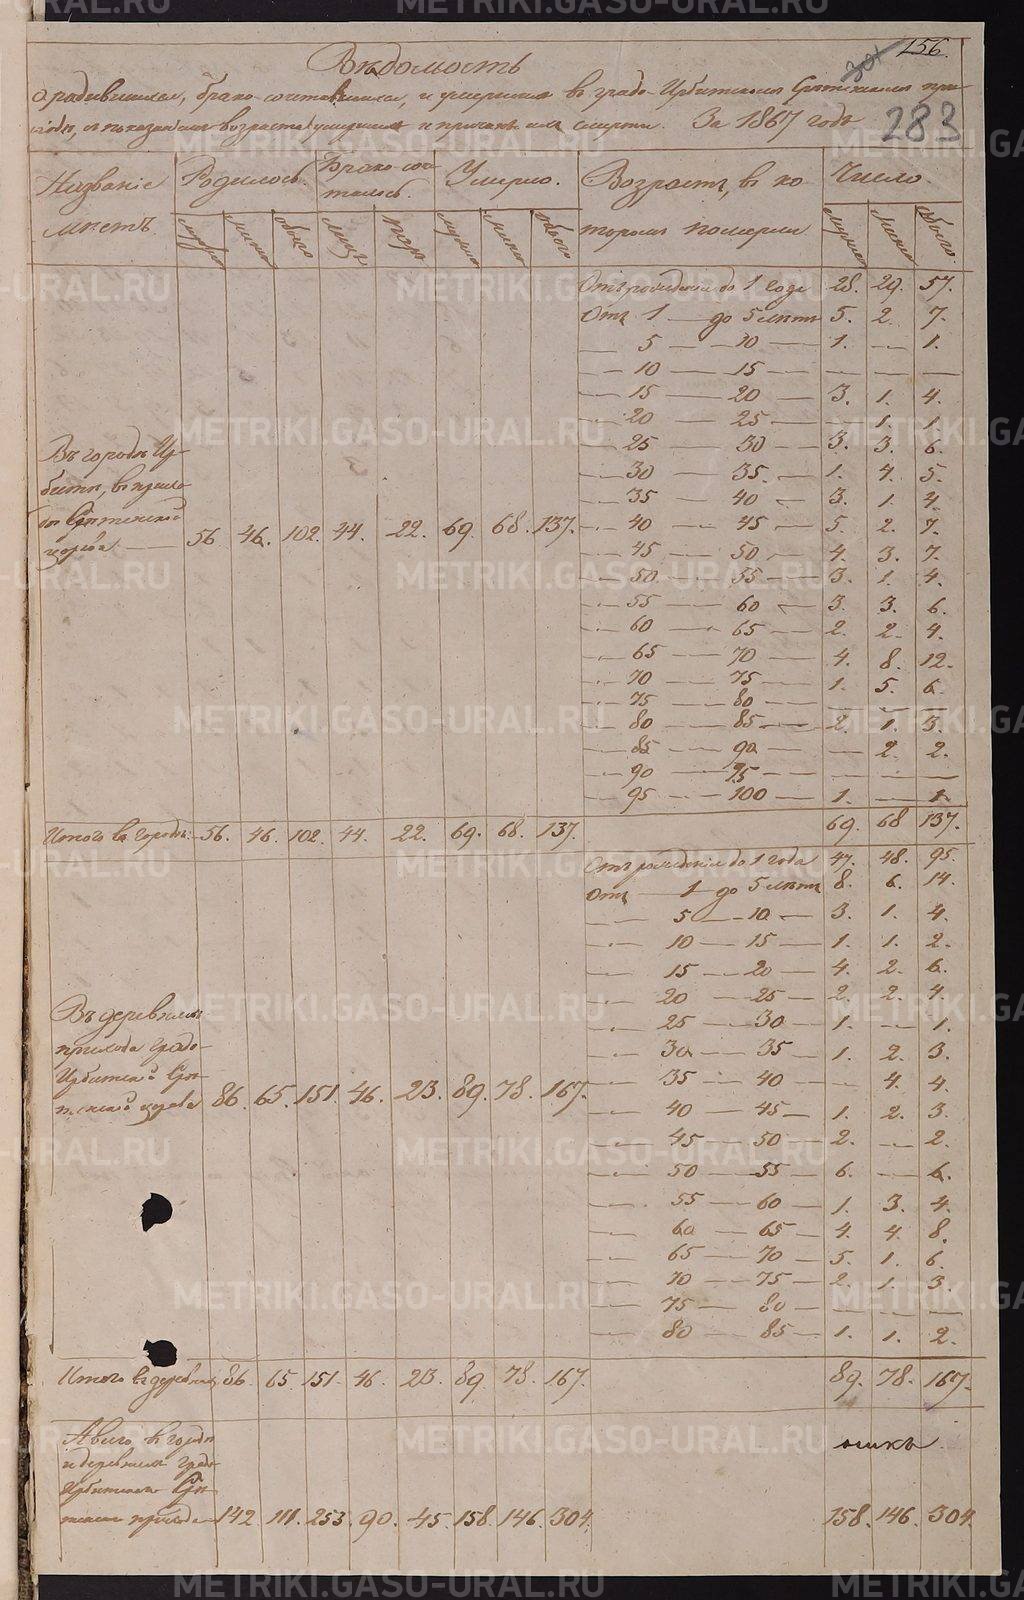 156.
301
283
Вѣдомость
о родившихся, брако-сочетавшихся, и умершихъ въ градо-Ирбитскомъ Срѣтенскомъ при-
ходѣ, съ показаніемъ возраста умершихъ и причинъ ихъ смерти. За 1867 годъ
Названіе мѣстъ.
Родилось. Брако-соче-талось. Умерло. Возрастъ, въ ко-торомъ померли Число.
мужес женск обоего лицъ паръ мужес женск обоего мужес женск обоего
Отъ рожденія до 1 года 28. 29. 57.
Отъ 1 — до 5 лѣтъ 5. 2. 7.
— 5 — 10 — 1. — 1.
— 10 — 15 — — — —
— 15 — 20 — 3. 1. 4.
— 20 — 25 — — 1. 1.
— 25 — 30 — 3. 3. 6.
— 30 — 35. — 1. 4. 5.
— 35 — 40 — 3. 1. 4.
— 40 — 45 — 5. 2. 7.
— 45 — 50. — 4. 3. 7.
— 50. — 55 — 3. 1. 4.
— 55 — 60 — 3. 3. 6.
— 60 — 65 — 2. 2. 4.
— 65 — 70 — 4. 8. 12.
— 70 — 75 — 1. 5. 6.
— 75 — 80 — — — —
— 80 — 85 — 2. 1. 3.
— 85 — 90 — — 2. 2.
— 90 — 95 — — — —
— 95 — 100 — 1. — 1.
Въ городѣ Ир-
битѣ, въ прихо-
дѣ Срѣтенской
церкви — 56 46. 102. 44. 22. 69. 68. 137.
Итого въ городѣ: 56. 46. 102. 44. 22. 69. 68. 137. 69. 68 137.
Отъ рожденія до 1 года 47. 48. 95.
Отъ — 1 до 5 лѣтъ 8. 6. 14.
— 5 — 10 — 3. 1. 4.
— 10 — 15 — 1. 1. 2.
— 15 — 20 — 4. 2. 6.
— 20 — 25 — 2. 2. 4.
— 25 — 30 — 1. — 1.
— 30 — 35 — 1. 2. 3.
— 35 — 40 — — 4. 4.
— 40 — 45 — 1. 2. 3.
— 45 — 50 — 2. — 2.
— 50 — 55 — 6. — 6.
— 55 — 60 — 1. 3. 4.
— 60 — 65 — 4. 4. 8.
— 65 — 70 — 5. 1. 6.
— 70 — 75 — 2. 1. 3.
— 75 — 80 — — — —
— 80 — 85 — 1. 1. 2.
Въ деревняхъ
прихода градо-
Ирбитской Срѣ-
тенской церкви 86. 65. 151. 46. 23. 89. 78. 167.
Итого въ деревняхъ 86. 65. 151. 46. 23. 89. 78. 167. 89. 78. 167.
А всего въ городѣ
и деревняхъ градо
Ирбитскаго Срѣ-
тенскаго прихода 142. 111. 253. 90. 45. 158. 146. 304. 158. 146. 304.
METRIKI.GASO-URAL.RU